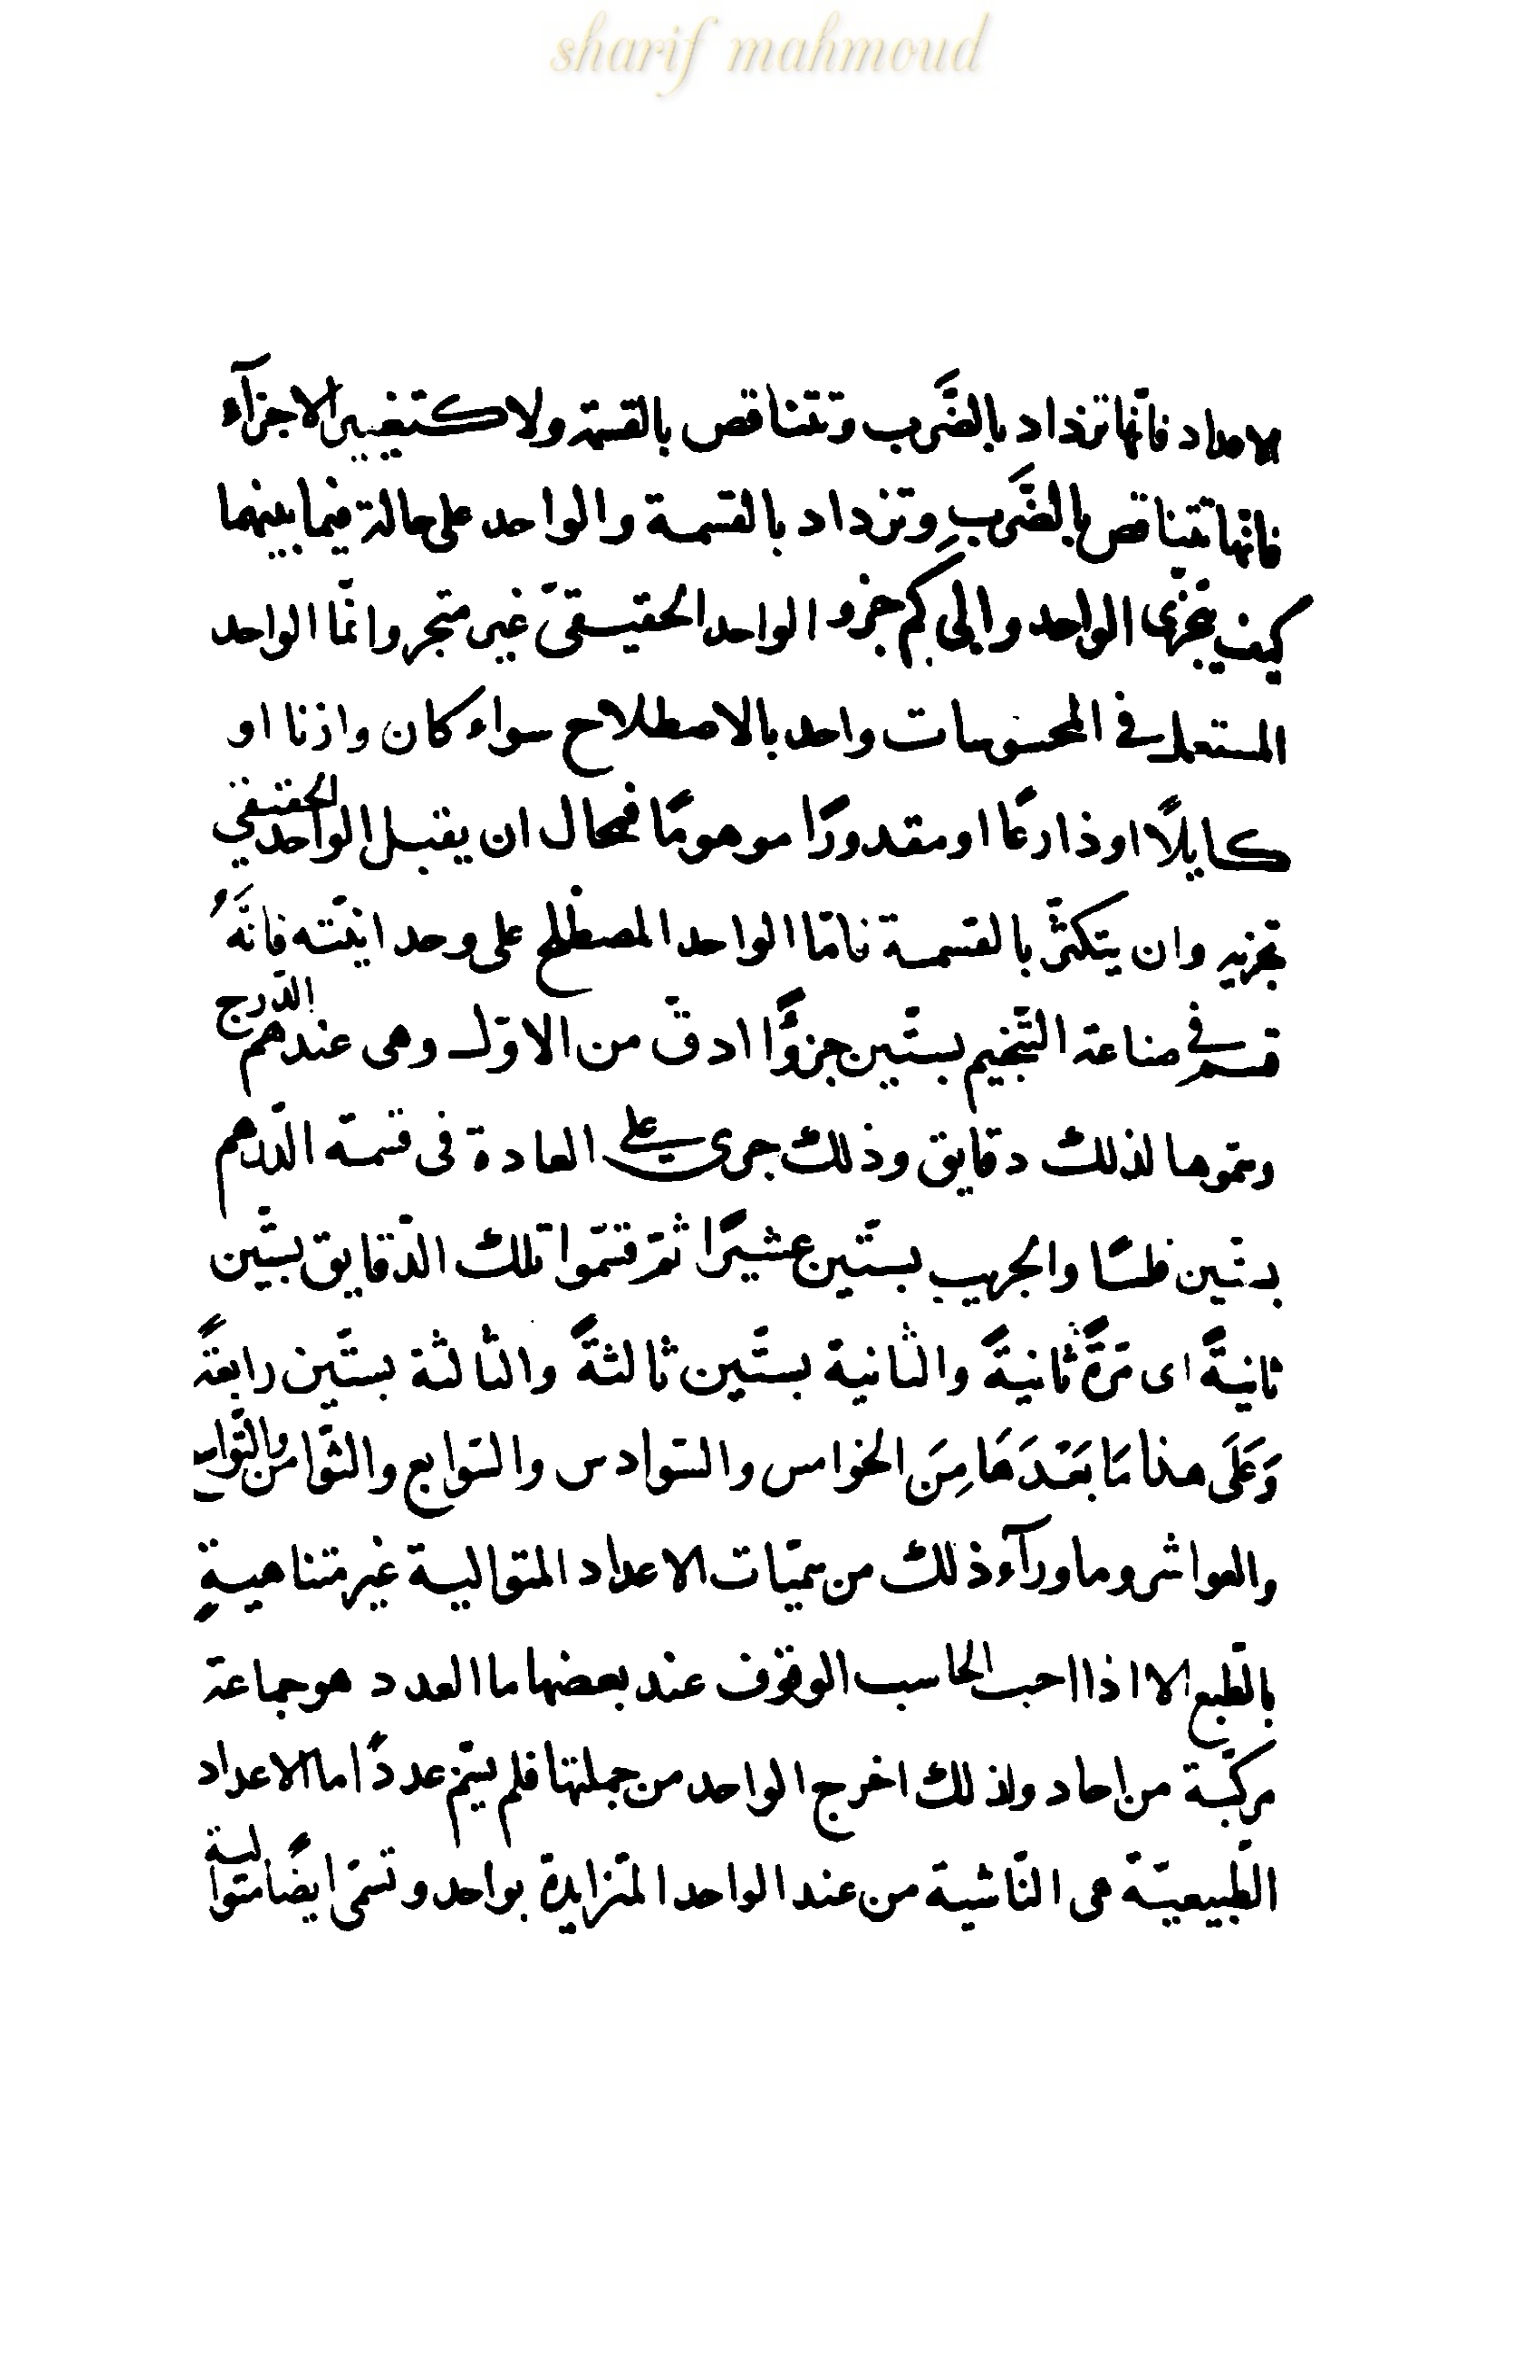 sharif mahmoud
الاعداد فانّها تزداد بالضَّرب وتتناقص بالقسمة ولا كتغيير الاجزآء
فانّها تتناقص بالضَّربِ وتزداد بالقسمة والواحد على حالة فيما بينهما
كيف يتجزّى الواحد والى كم جزو الواحد الحقيقىّ غير متجز وانّما الواحد
المستعمل فى المحسوسات واحد بالاصطلاح سواء كان وازنا او
كايلاً او ذارعًا او مقدورًا موهومًا فمحال ان يقبل الواحد الحقيقي
تجزيه وان يتكثّر بالقسمة فامّا الواحد المصطلح على وحدانيّته فانَّهُ
قسم فى صناعة التّنجيم بستّين جزوًّا ادقّ من الاوّل وهى عندهم الدّرج
وسمّوها لذلك دقايق وذلك جرى على العادة فى قسمة الدّرهم
بستّين فلسًا والجريب بستّين عشيرًا ثمّ قسّموا تلك الدّقايق بستّين
ثانيةً اى مَرةً ثانيةً والثانية بستّين ثالثةً والثّالثة بستّين رابعةً
وَعَلَى هذا مَا بَعْدَهَا مِنَ الخوامس والسّوادس والسّوابع والثّوامن والتّواسع
والعواشر وما ورآء ذلك من سميّات الاعداد المتوالية غير متناهيةٍ
بالطّبع الا اذا احب الحاسب الوقوف عند بعضها ما العدد هو جماعة
مركّبة من احاد ولذلك اخرج الواحد من جملتها فلم يسمّ عددًا ما الاعداد
الطّبيعيّة هى النّاشية من عند الواحد المتزايدة بواحد وتسمّى ايضًا متوالية